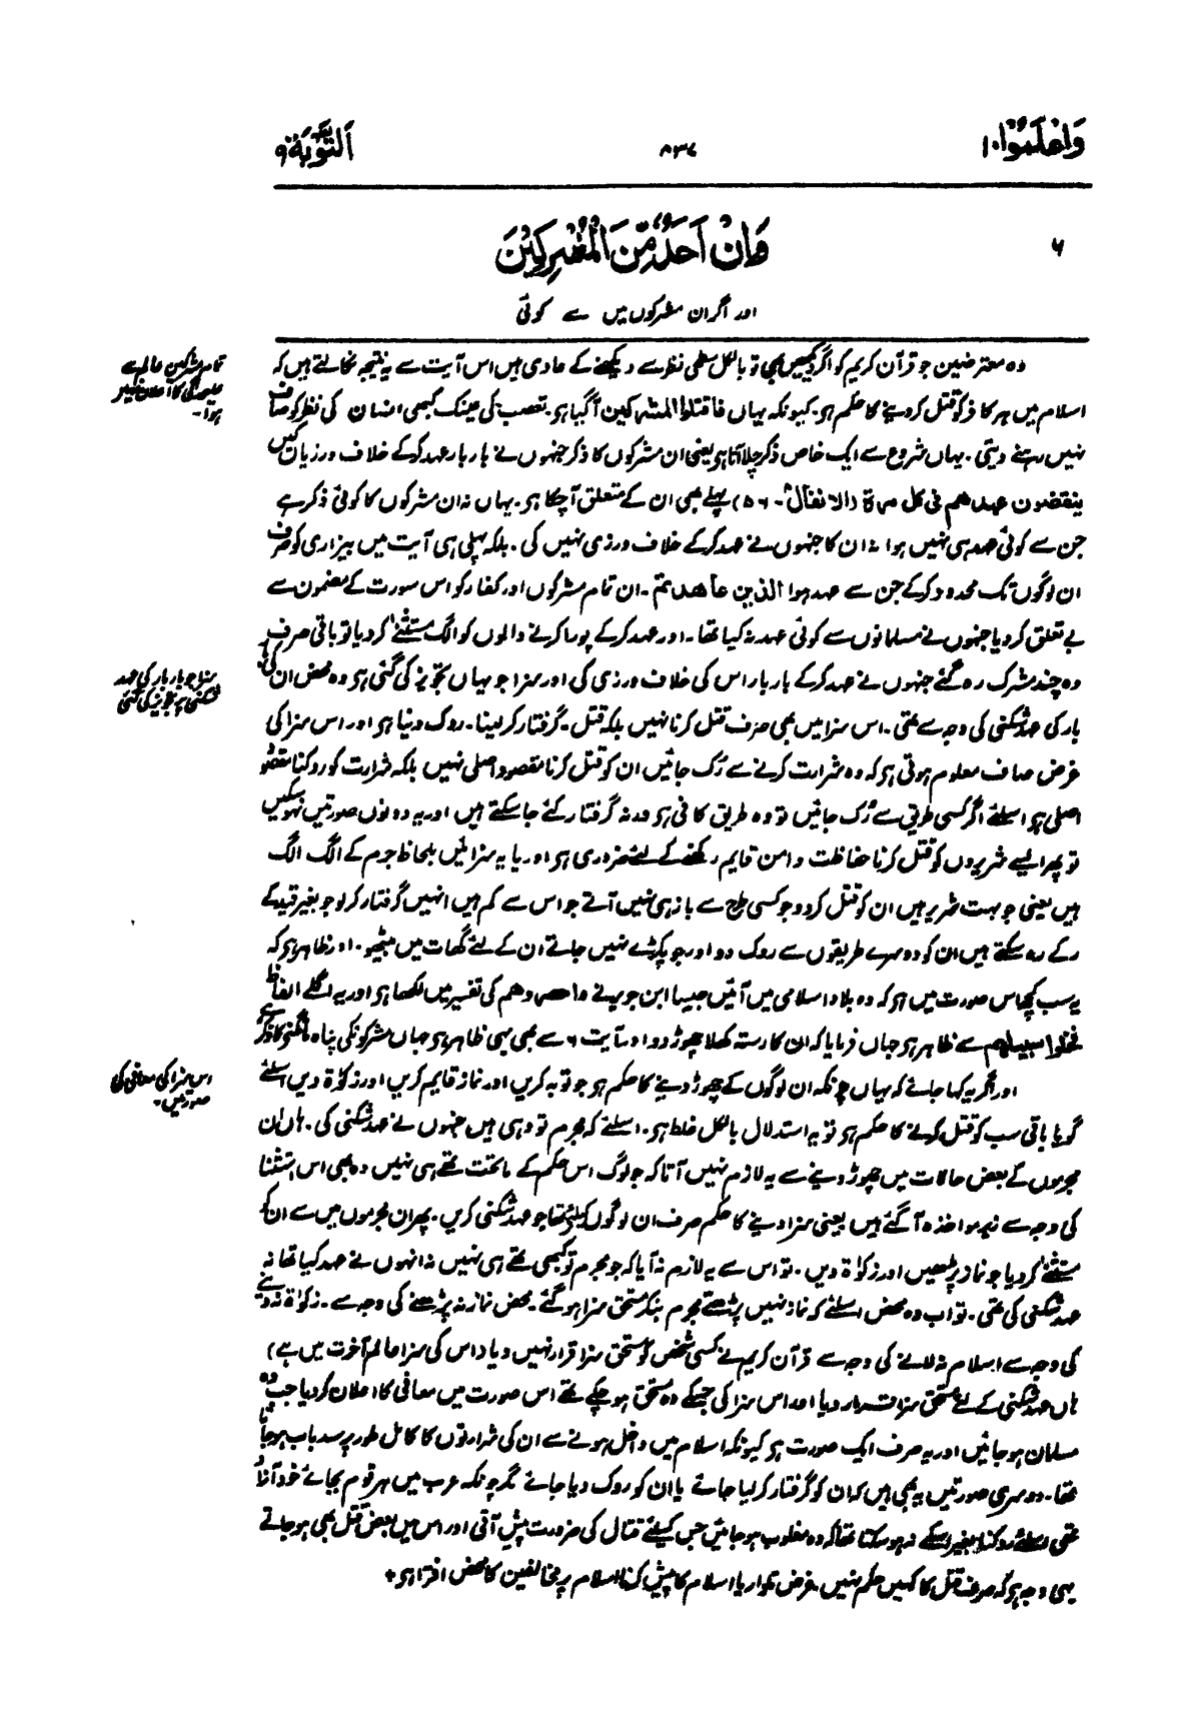 وَاعْلَمُوْا ۱۰
۸۳۷
اَلتَّوْبَة ۹
۶
وَاِنْ اَحَدٌ مِّنَ الْمُشْرِكِيْنَ
اور اگر ان مشرکوں میں سے کوئی
وہ معترضین جو قرآن کریم کو اگر دیکھیں بھی تو بالکل سطحی نظر سے دیکھنے کے عادی ہیں اس آیت سے یہ نتیجہ نکالتے ہیں کہ
اسلام میں ہر کافر کو قتل کر دینے کا حکم ہو۔ کیونکہ یہاں فاقتلوا المشرکین آگیا ہو۔ تعصب کی عینک کبھی انسان کی نظر کو صاف
نہیں رہنے دیتی۔ یہاں شروع سے ایک خاص ذکر چلا آتا ہو یعنی ان مشرکوں کا ذکر جنہوں نے بار بار عہد کر کے خلاف ورزیاں کیں
ینقضون عہدھم فی کل مرة (الانفال۔ ۵۶) پہلے بھی ان کے متعلق آچکا ہو۔ یہاں نہ ان مشرکوں کا کوئی ذکر ہے
جن سے کوئی عہد ہی نہیں ہوا نہ ان کا جنہوں نے عہد کر کے خلاف ورزی نہیں کی۔ بلکہ پہلی ہی آیت میں بیزاری کو صرف
ان لوگوں تک محدود کر کے جن سے عہد ہوا الذین عاھدتم۔ ان تمام مشرکوں اور کفار کو اس سورت کے مضمون سے
بے تعلق کر دیا جنہوں نے مسلمانوں سے کوئی عہد نہ کیا تھا۔ اور عہد کر کے پورا کرنے والوں کو الگ مستثنےٰ کر دیا تو باقی صرف
وہ چند مشرک رہ گئے جنہوں نے عہد کر کے بار بار اس کی خلاف ورزی کی اور سزا جو یہاں تجویز کی گئی ہو وہ محض ان کی بار
بار کی عہد شکنی کی وجہ سے تھی۔ اس سزا میں بھی صرف قتل کرنا نہیں بلکہ قتل۔ گرفتار کر لینا۔ روک دینا ہو اور اس سزا کی
غرض صاف معلوم ہوتی ہو کہ وہ شرارت کرنے سے رُک جائیں ان کو قتل کرنا مقصود اصلی نہیں بلکہ شرارت کو روکنا مقصود
اصلی ہو اسلئے اگر کسی طریق سے رُک جائیں تو وہ طریق کافی ہو ورنہ گرفتار کئے جا سکتے ہیں اور یہ دونوں صورتیں نہ ہو سکیں
تو پھر ایسے شریروں کو قتل کرنا حفاظت و امن قایم رکھنے کے لئے ضروری ہو اور یا یہ سزائیں بلحاظ جرم کے الگ الگ
ہیں یعنی جو بہت شریر ہیں ان کو قتل کر دو جو کسی طرح سے باز ہی نہیں آتے جو اس سے کم ہیں انہیں گرفتار کر لو جو بغیر قید کے
رکے رہ سکتے ہیں ان کو دوسرے طریقوں سے روک دو اور جو پکڑے نہیں جاتے ان کے لئے گھات میں بیٹھو۔ اور ظاہر ہو کہ
یہ سب کچھ اس صورت میں ہو کہ وہ بلاد اسلامی میں آئیں جیسا ابن جریر نے واحصروھم کی تفسیر میں لکھا ہو اور یہ اگلے الفاظ
فخلوا سبیلھم سے ظاہر ہو جہاں فرمایا کہ ان کا رستہ کھلا چھوڑ دو اور آیت ۶ سے بھی یہی ظاہر ہو جہاں مشرکو نکی پناہ مانگنے کا ذکر ہے
اور اگر یہ کہا جائے کہ یہاں چونکہ ان لوگوں کے چھوڑ دینے کا حکم ہو جو توبہ کریں اور نماز قایم کریں اور زکوٰة دیں اسلئے
گویا باقی سب کو قتل کرنے کا حکم ہو تو یہ استدلال بالکل غلط ہو۔ اسلئے کہ مجرم تو وہی ہیں جنہوں نے عہد شکنی کی۔ ہاں ان
مجرموں کے بعض حالات میں چھوڑ دینے سے یہ لازم نہیں آتا کہ جو لوگ اس حکم کے ماتحت تھے ہی نہیں وہ بھی اس استثنا
کی وجہ سے زیر مواخذہ آگئے ہیں یعنی سزا دینے کا حکم صرف ان لوگوں کیلئے تھا جو عہد شکنی کریں۔ پھر ان مجرموں میں سے ان کو
مستثنےٰ کر دیا جو نماز پڑھیں اور زکوٰة دیں۔ تو اس سے یہ لازم نہ آیا کہ جو مجرم تو کبھی تھے ہی نہیں نہ انہوں نے عہد کیا تھا نہ
عہد شکنی کی تھی۔ تو اب وہ محض اسلئے کہ نماز نہیں پڑھتے مجرم بنکر مستحق سزا ہو گئے۔ محض نماز نہ پڑھنے کی وجہ سے۔ زکوٰة نہ دینے
کی وجہ سے اسلام نہ لانے کی وجہ سے قرآن کریم نے کسی شخص کو مستحق سزا قرار نہیں دیا (اس کی سزا عالم آخرت میں ہے)
ہاں عہد شکنی کے لئے مستحق سزا قرار دیا اور اس سزا کی جسکے وہ مستحق ہو چکے تھے اس صورت میں معافی کا اعلان کر دیا جب وہ
مسلمان ہو جائیں اور یہ صرف ایک صورت ہو کیونکہ اسلام میں داخل ہونے سے ان کی شرارتوں کا کامل طور پر سد باب ہو جاتا
تھا۔ دوسری صورتیں یہ بھی ہیں کہ ان کو گرفتار کر لیا جائے یا ان کو روک دیا جائے مگر چونکہ عرب میں ہر قوم بجائے خود آزاد
تھی اسلئے روکنا بغیر اسکے نہ ہو سکتا تھا کہ وہ مغلوب ہو جائیں جس کیلئے قتال کی ضرورت پیش آتی اور اس میں بعض قتل بھی ہو جاتے
یہی وجہ ہو کہ صرف قتل کا کہیں حکم نہیں۔ غرض تلوار یا اسلام کا پیش کرنا اسلام پر مخالفین کا محض افترا ہو۔
تمام مشرکین عالم سے
علیحدگی کا اعلان نہیں
ہوا۔
سزا جو بار بار کی عہد
شکنی پر تجویز کی گئی
اس سزا کی معافی کی
صورتیں۔